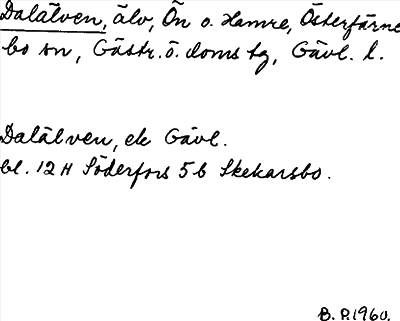 Dalälven, älv, Ön o. Hamre, Österfärne
bo sn, Gästr. ö. doms tg, Gävl. l.
Dalälven, ek Gävl.
bl. 12 H Söderfors 5 b Skekarsbo.
B. P. 1960.